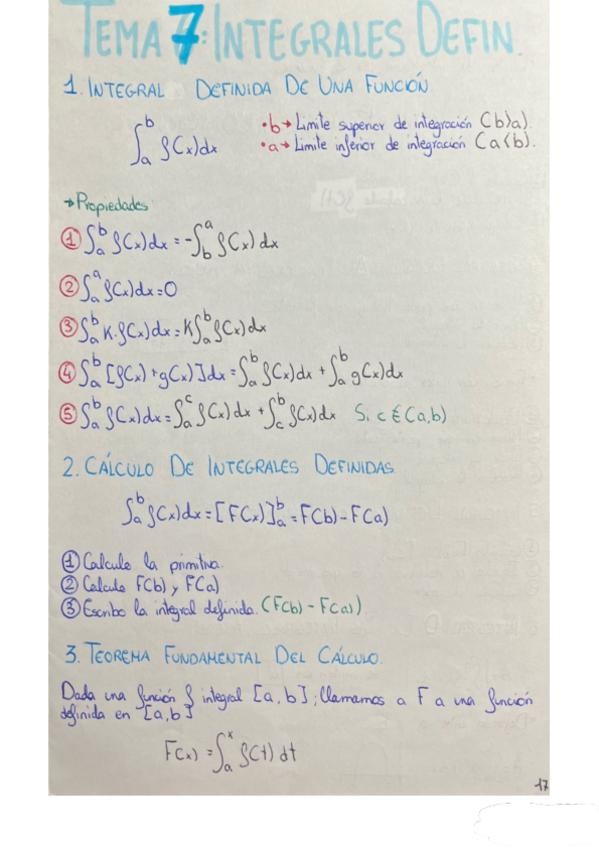 TEMA 7: INTEGRALES DEFIN.
1. INTEGRAL DEFINIDA DE UNA FUNCIÓN
∫ₐᵇ f(x)dx
• b → Limite superior de integración (b>a).
• a → Limite inferior de integración (a<b).
→ Propiedades
① ∫ₐᵇ f(x)dx = -∫_b^a f(x)dx
② ∫ₐᵃ f(x)dx = 0
③ ∫ₐᵇ K·f(x)dx = K∫ₐᵇ f(x)dx
④ ∫ₐᵇ [f(x) + g(x)]dx = ∫ₐᵇ f(x)dx + ∫ₐᵇ g(x)dx
⑤ ∫ₐᵇ f(x)dx = ∫_a^c f(x)dx + ∫_c^b f(x)dx Si c € (a,b)
2. CÁLCULO DE INTEGRALES DEFINIDAS
∫ₐᵇ f(x)dx = [F(x)]ₐᵇ = F(b) - F(a)
① Calculo la primitiva.
② Calculo F(b) y F(a)
③ Escribo la integral definida. (F(b) - F(a))
3. TEOREMA FUNDAMENTAL DEL CÁLCULO.
Dada una función f integral [a,b]; llamamos a F a una función
definida en [a,b]
F(x) = ∫ₐˣ f(t)dt
17